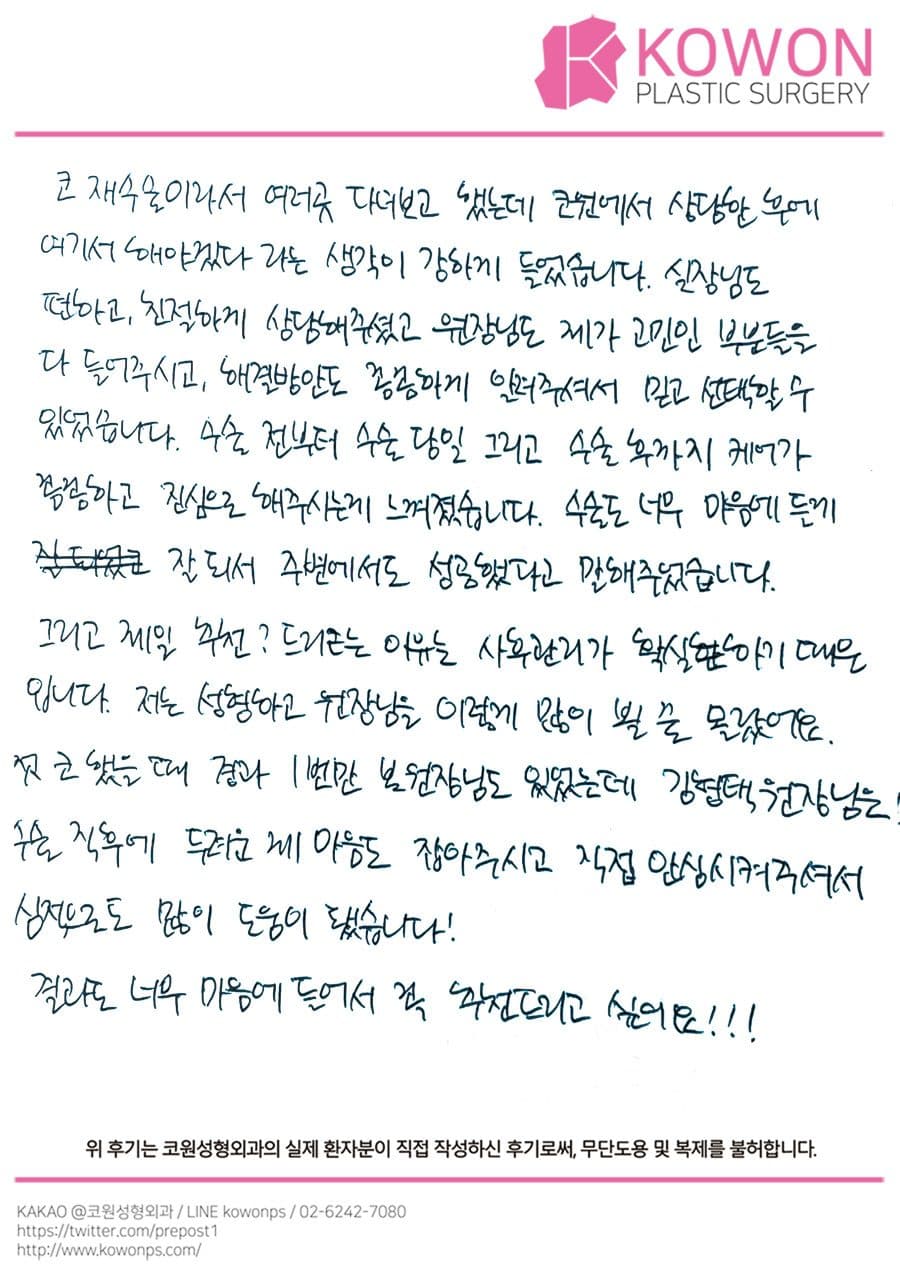 KOWON
PLASTIC SURGERY
코 재수술이라서 여러곳 다녀보고 했는데 코원에서 상담한 후에
여기서 해야겠다 라는 생각이 강하게 들었습니다. 실장님도
편하고, 친절하게 상담해주셨고 원장님도 제가 고민인 부분들을
다 들어주시고, 해결방안도 꼼꼼하게 알려주셔서 믿고 선택할 수
있었습니다. 수술 전부터 수술 당일 그리고 수술 후까지 케어가
꼼꼼하고 진심으로 해주시는게 느껴졌습니다. 수술도 너무 마음에 들게
잘 되서 주변에서도 성공했다고 말해주었습니다.
그리고 제일 추천? 드리는 이유는 사후관리가 확실하기 때문
입니다. 저는 성형하고 원장님을 이렇게 많이 뵐 줄 몰랐어요.
첫 코 했을 때 결과 1번만 본 원장님도 있었는데 김형택 원장님은!
수술 직후에 두려운 제 마음도 잡아주시고 직접 안심시켜주셔서
심적으로도 많이 도움이 됐습니다!
결과도 너무 마음에 들어서 꼭 추천드리고 싶어요!!!
위 후기는 코원성형외과의 실제 환자분이 직접 작성하신 후기로써, 무단도용 및 복제를 불허합니다.
KAKAO @코원성형외과 / LINE kowonps / 02-6242-7080
https://twitter.com/prepost1
http://www.kowonps.com/